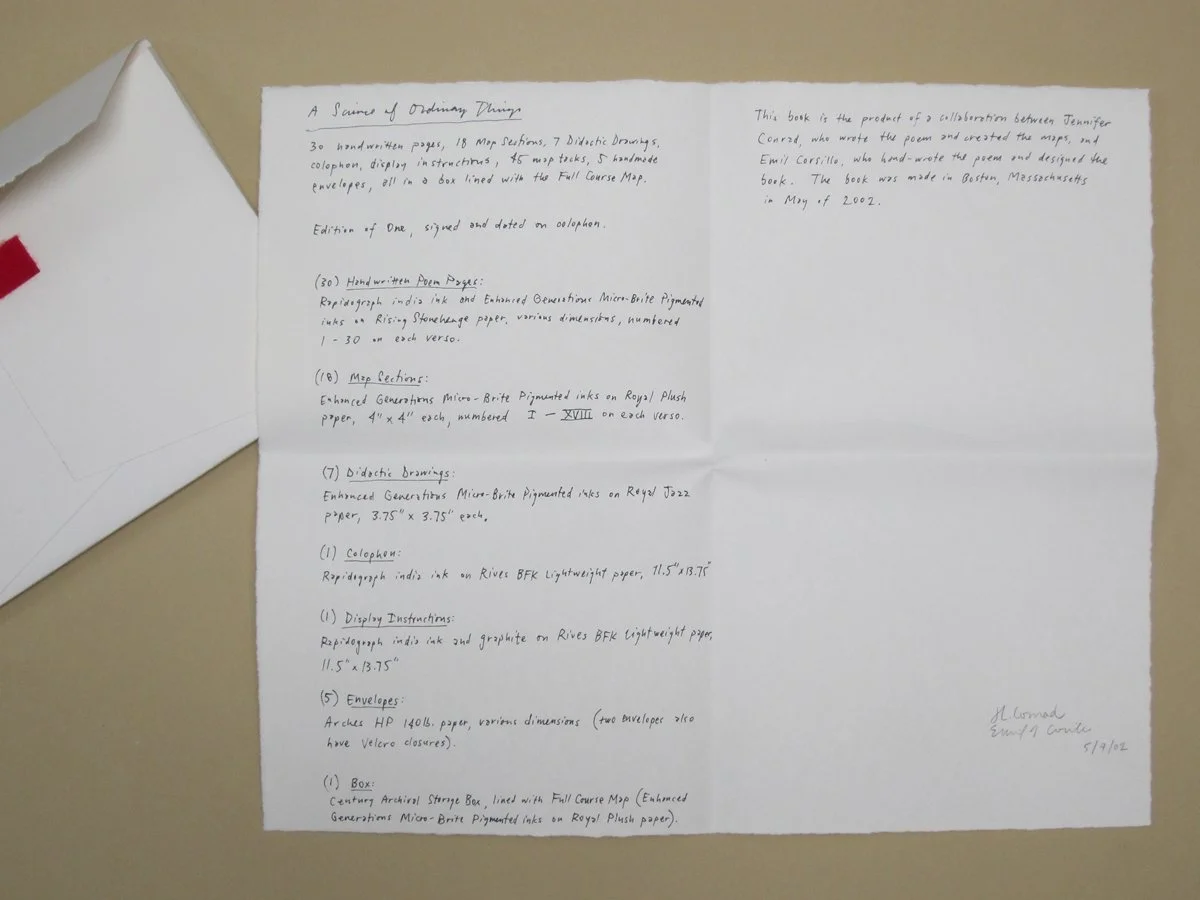 A Science of Ordinary Things
30 handwritten pages, 18 Map Sections, 7 Didactic Drawings,
colophon, display instructions, 45 map tacks, 5 handmade
envelopes, all in a box lined with the Full Course Map.
Edition of One, signed and dated on colophon.
(30) Handwritten Poem Pages:
Rapidograph india ink and Enhanced Generations Micro-Brite Pigmented
inks on Rising Stonehenge paper, various dimensions, numbered
1 - 30 on each verso.
(18) Map Sections:
Enhanced Generations Micro-Brite Pigmented inks on Royal Plush
paper, 4" x 4" each, numbered I — XVIII on each verso.
(7) Didactic Drawings:
Enhanced Generations Micro-Brite Pigmented inks on Royal Jazz
paper, 3.75" x 3.75" each.
(1) Colophon:
Rapidograph india ink on Rives BFK Lightweight paper, 11.5" x 13.75"
(1) Display Instructions:
Rapidograph india ink and graphite on Rives BFK Lightweight paper,
11.5" x 13.75"
(5) Envelopes:
Arches HP 140lb. paper, various dimensions (two envelopes also
have Velcro closures).
(1) Box:
Century Archival Storage Box, lined with Full Course Map (Enhanced
Generations Micro-Brite Pigmented inks on Royal Plush paper).
This book is the product of a collaboration between Jennifer
Conrad, who wrote the poem and created the maps, and
Emil Corsillo, who hand-wrote the poem and designed the
book. The book was made in Boston, Massachusetts
in May of 2002.
JL. Conrad
5/9/02